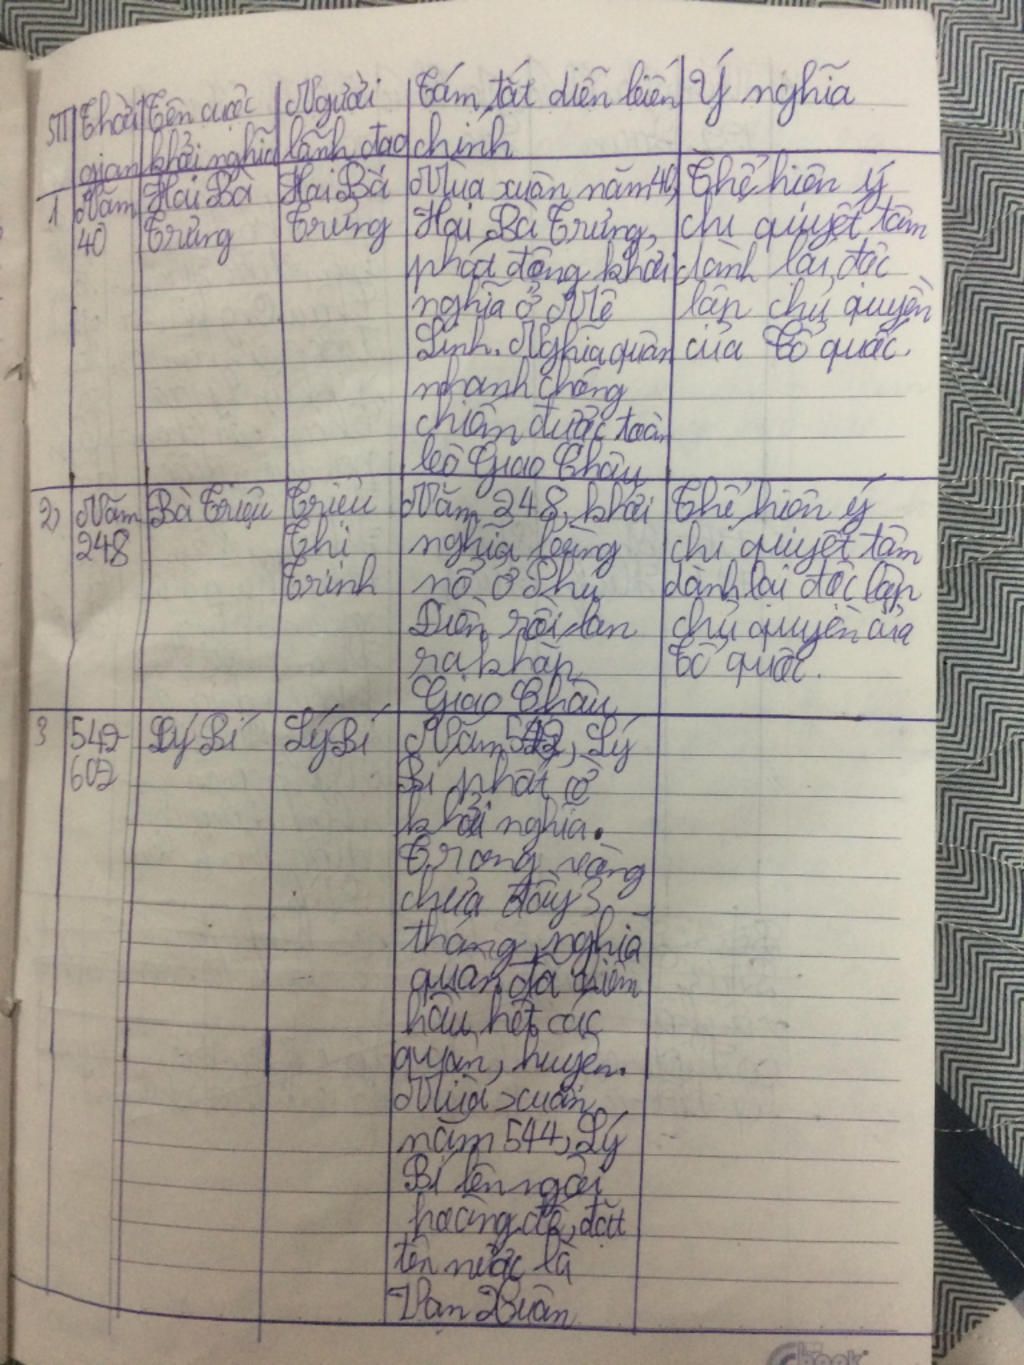 STT
Thời gian
Tên cuộc khởi nghĩa
Người lãnh đạo
Tóm tắt diễn biến chính
Ý nghĩa
1
Năm
40
Hai Bà
Trưng
Hai Bà
Trưng
Mùa xuân năm 40,
Hai Bà Trưng,
phát động khởi
nghĩa ở Mê
Linh. Nghĩa quân
nhanh chóng
chiếm được toàn
bộ Giao Châu
Thể hiện ý
chí quyết tâm
dành lại độc
lập chủ quyền
của Tổ quốc.
2)
Năm
248
Bà Triệu
Triệu
Thị
Trinh
Năm 248, khởi
nghĩa bùng
nổ ở Phú
Điền rồi lan
ra khắp
Giao Châu
Thể hiện ý
chí quyết tâm
dành lại độc lập
chủ quyền của
Tổ quốc.
3
542-
602
Lý Bí
Lý Bí
Năm 542, Lý
Bí phát ở
khởi nghĩa.
Trong vòng
chưa đầy 3
tháng, nghĩa
quân đã chiếm
hầu hết các
quận, huyện.
Mùa xuân
năm 544, Lý
Bí lên ngôi
hoàng đế, đặt
tên nước là
Vạn Xuân